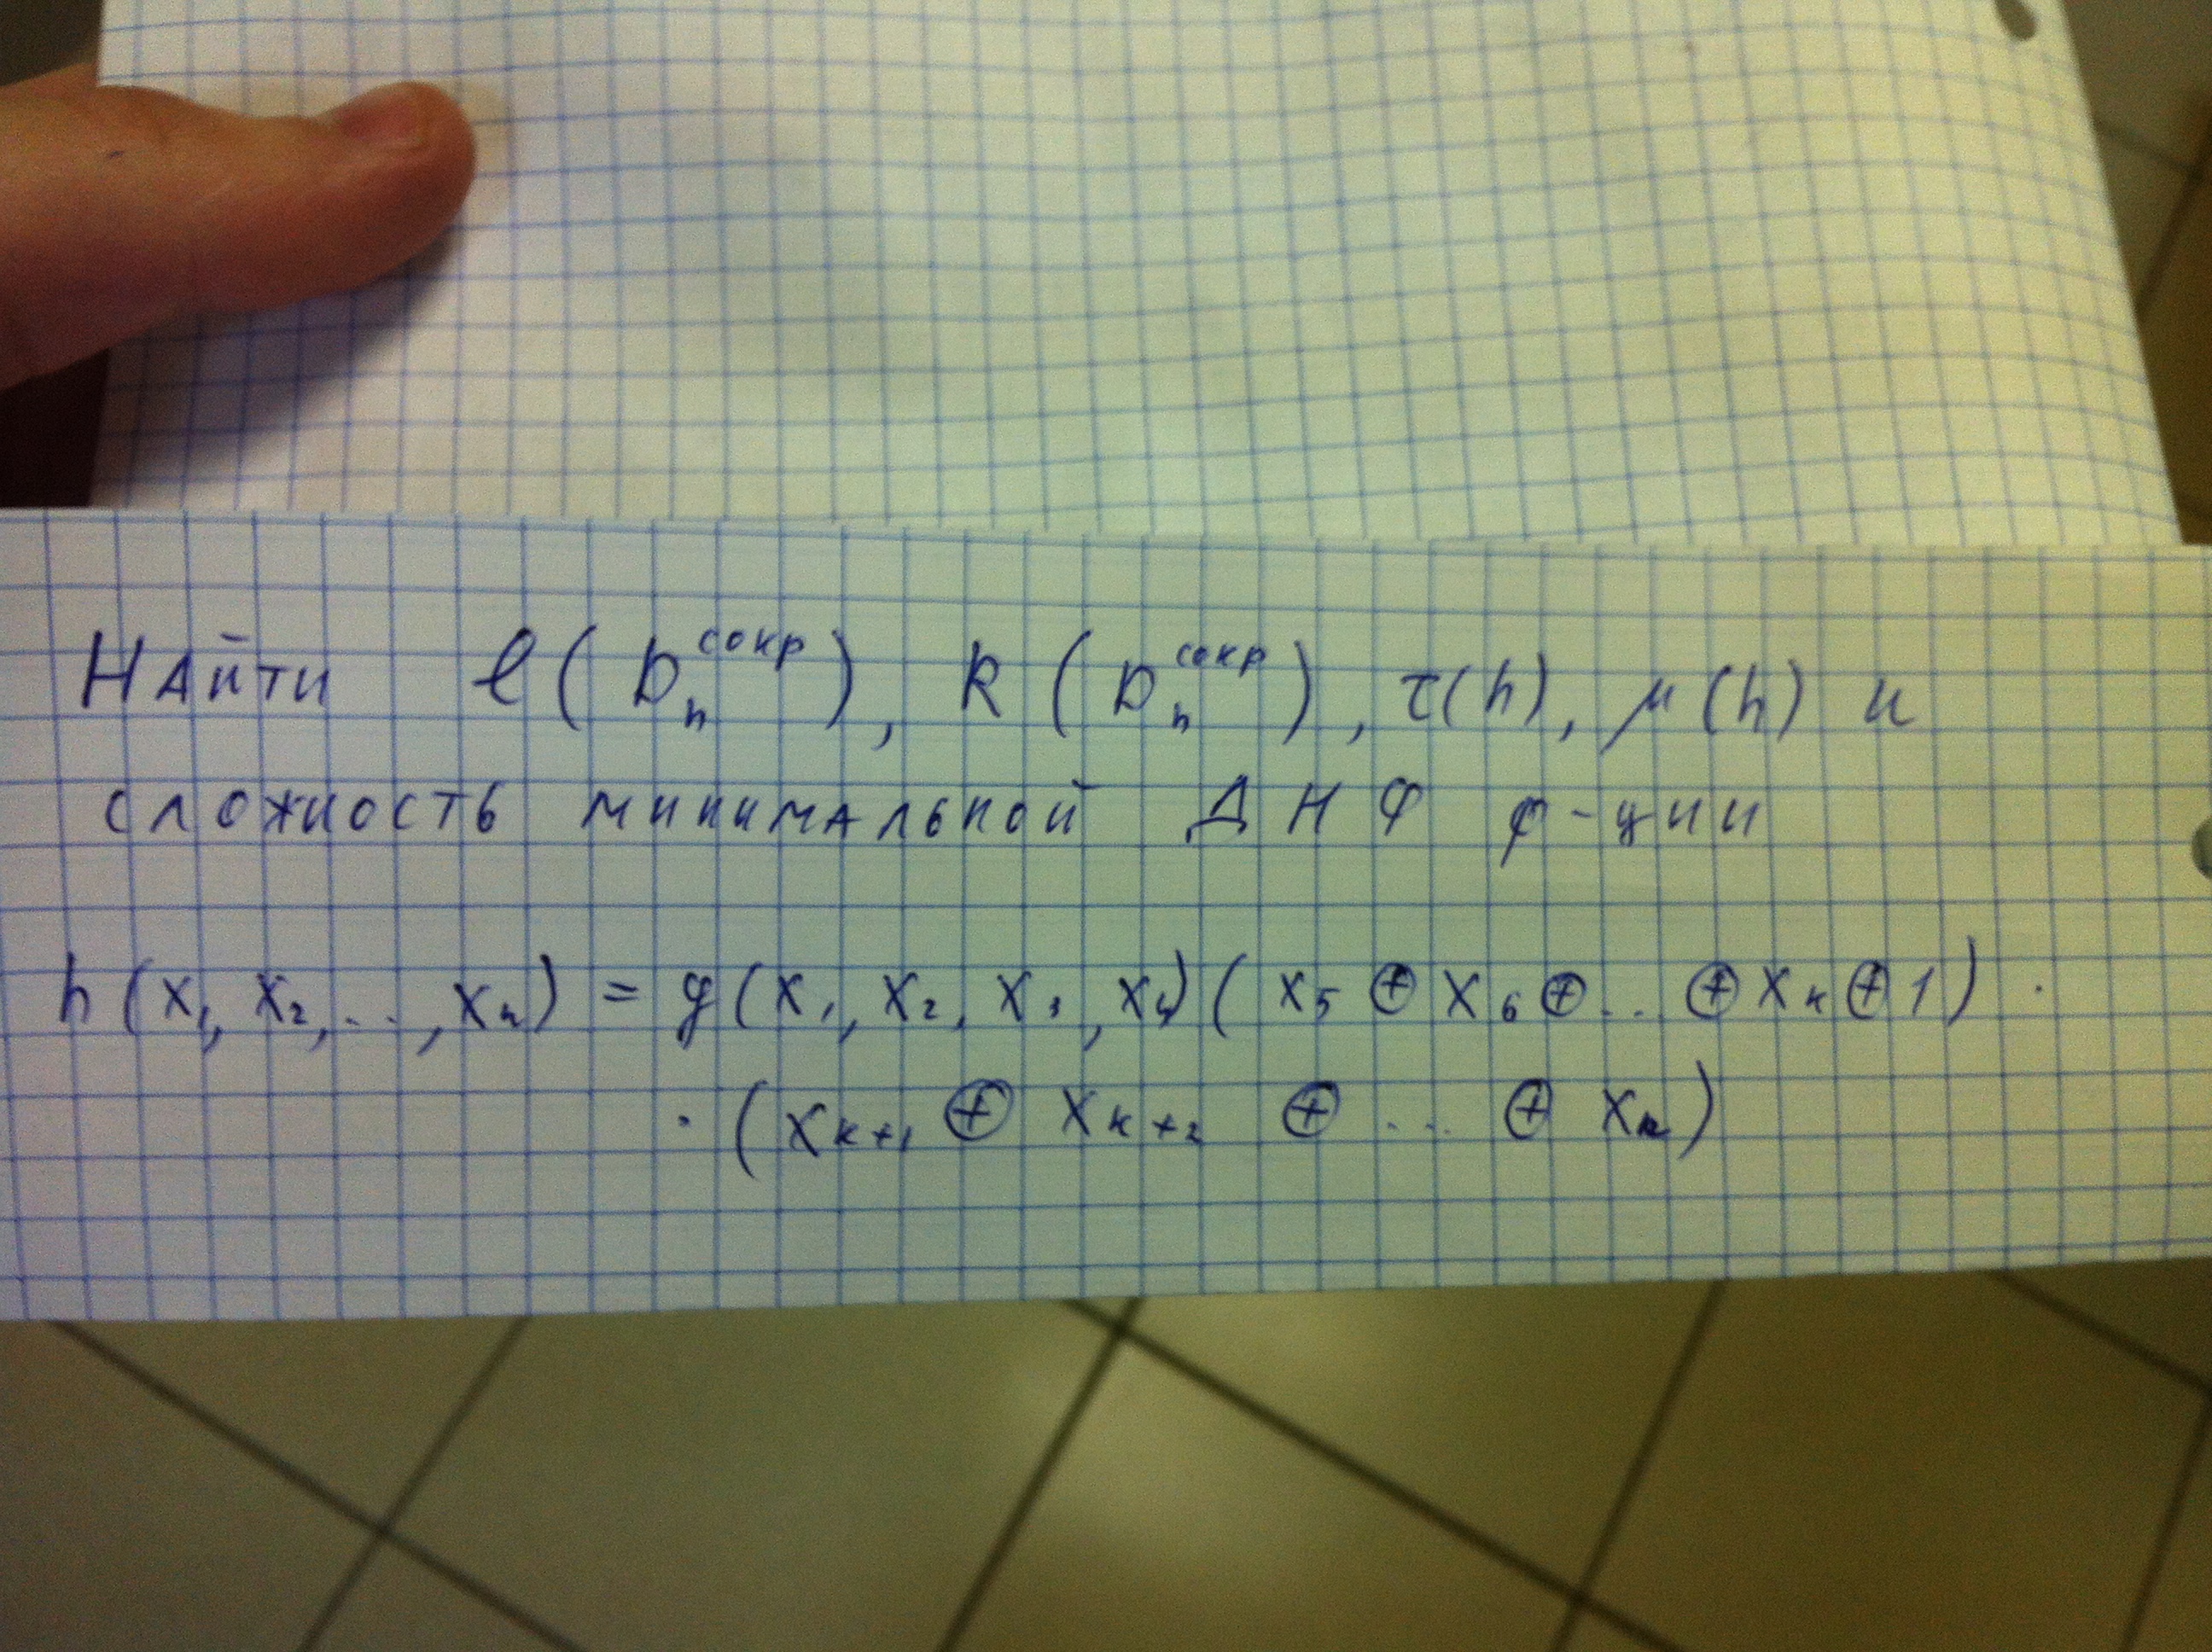 Найти ℓ(D_n^сокр), k(D_n^сокр), τ(h), μ(h) и
сложность минимальной ДНФ ф-ции
h(x₁, x₂, ..., xₙ) = g(x₁, x₂, x₃, x₄)(x₅ ⊕ x₆ ⊕ ... ⊕ xₖ ⊕ 1) ·
· (xₖ₊₁ ⊕ xₖ₊₂ ⊕ ... ⊕ xₙ)